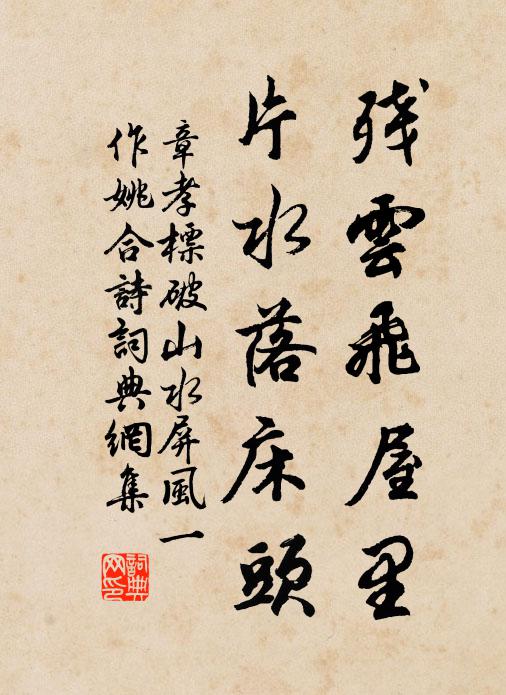 残雲飛屋里
片水落床頭
章孝標破山水屏風一
作姚合詩詞典網集
詞典
网印